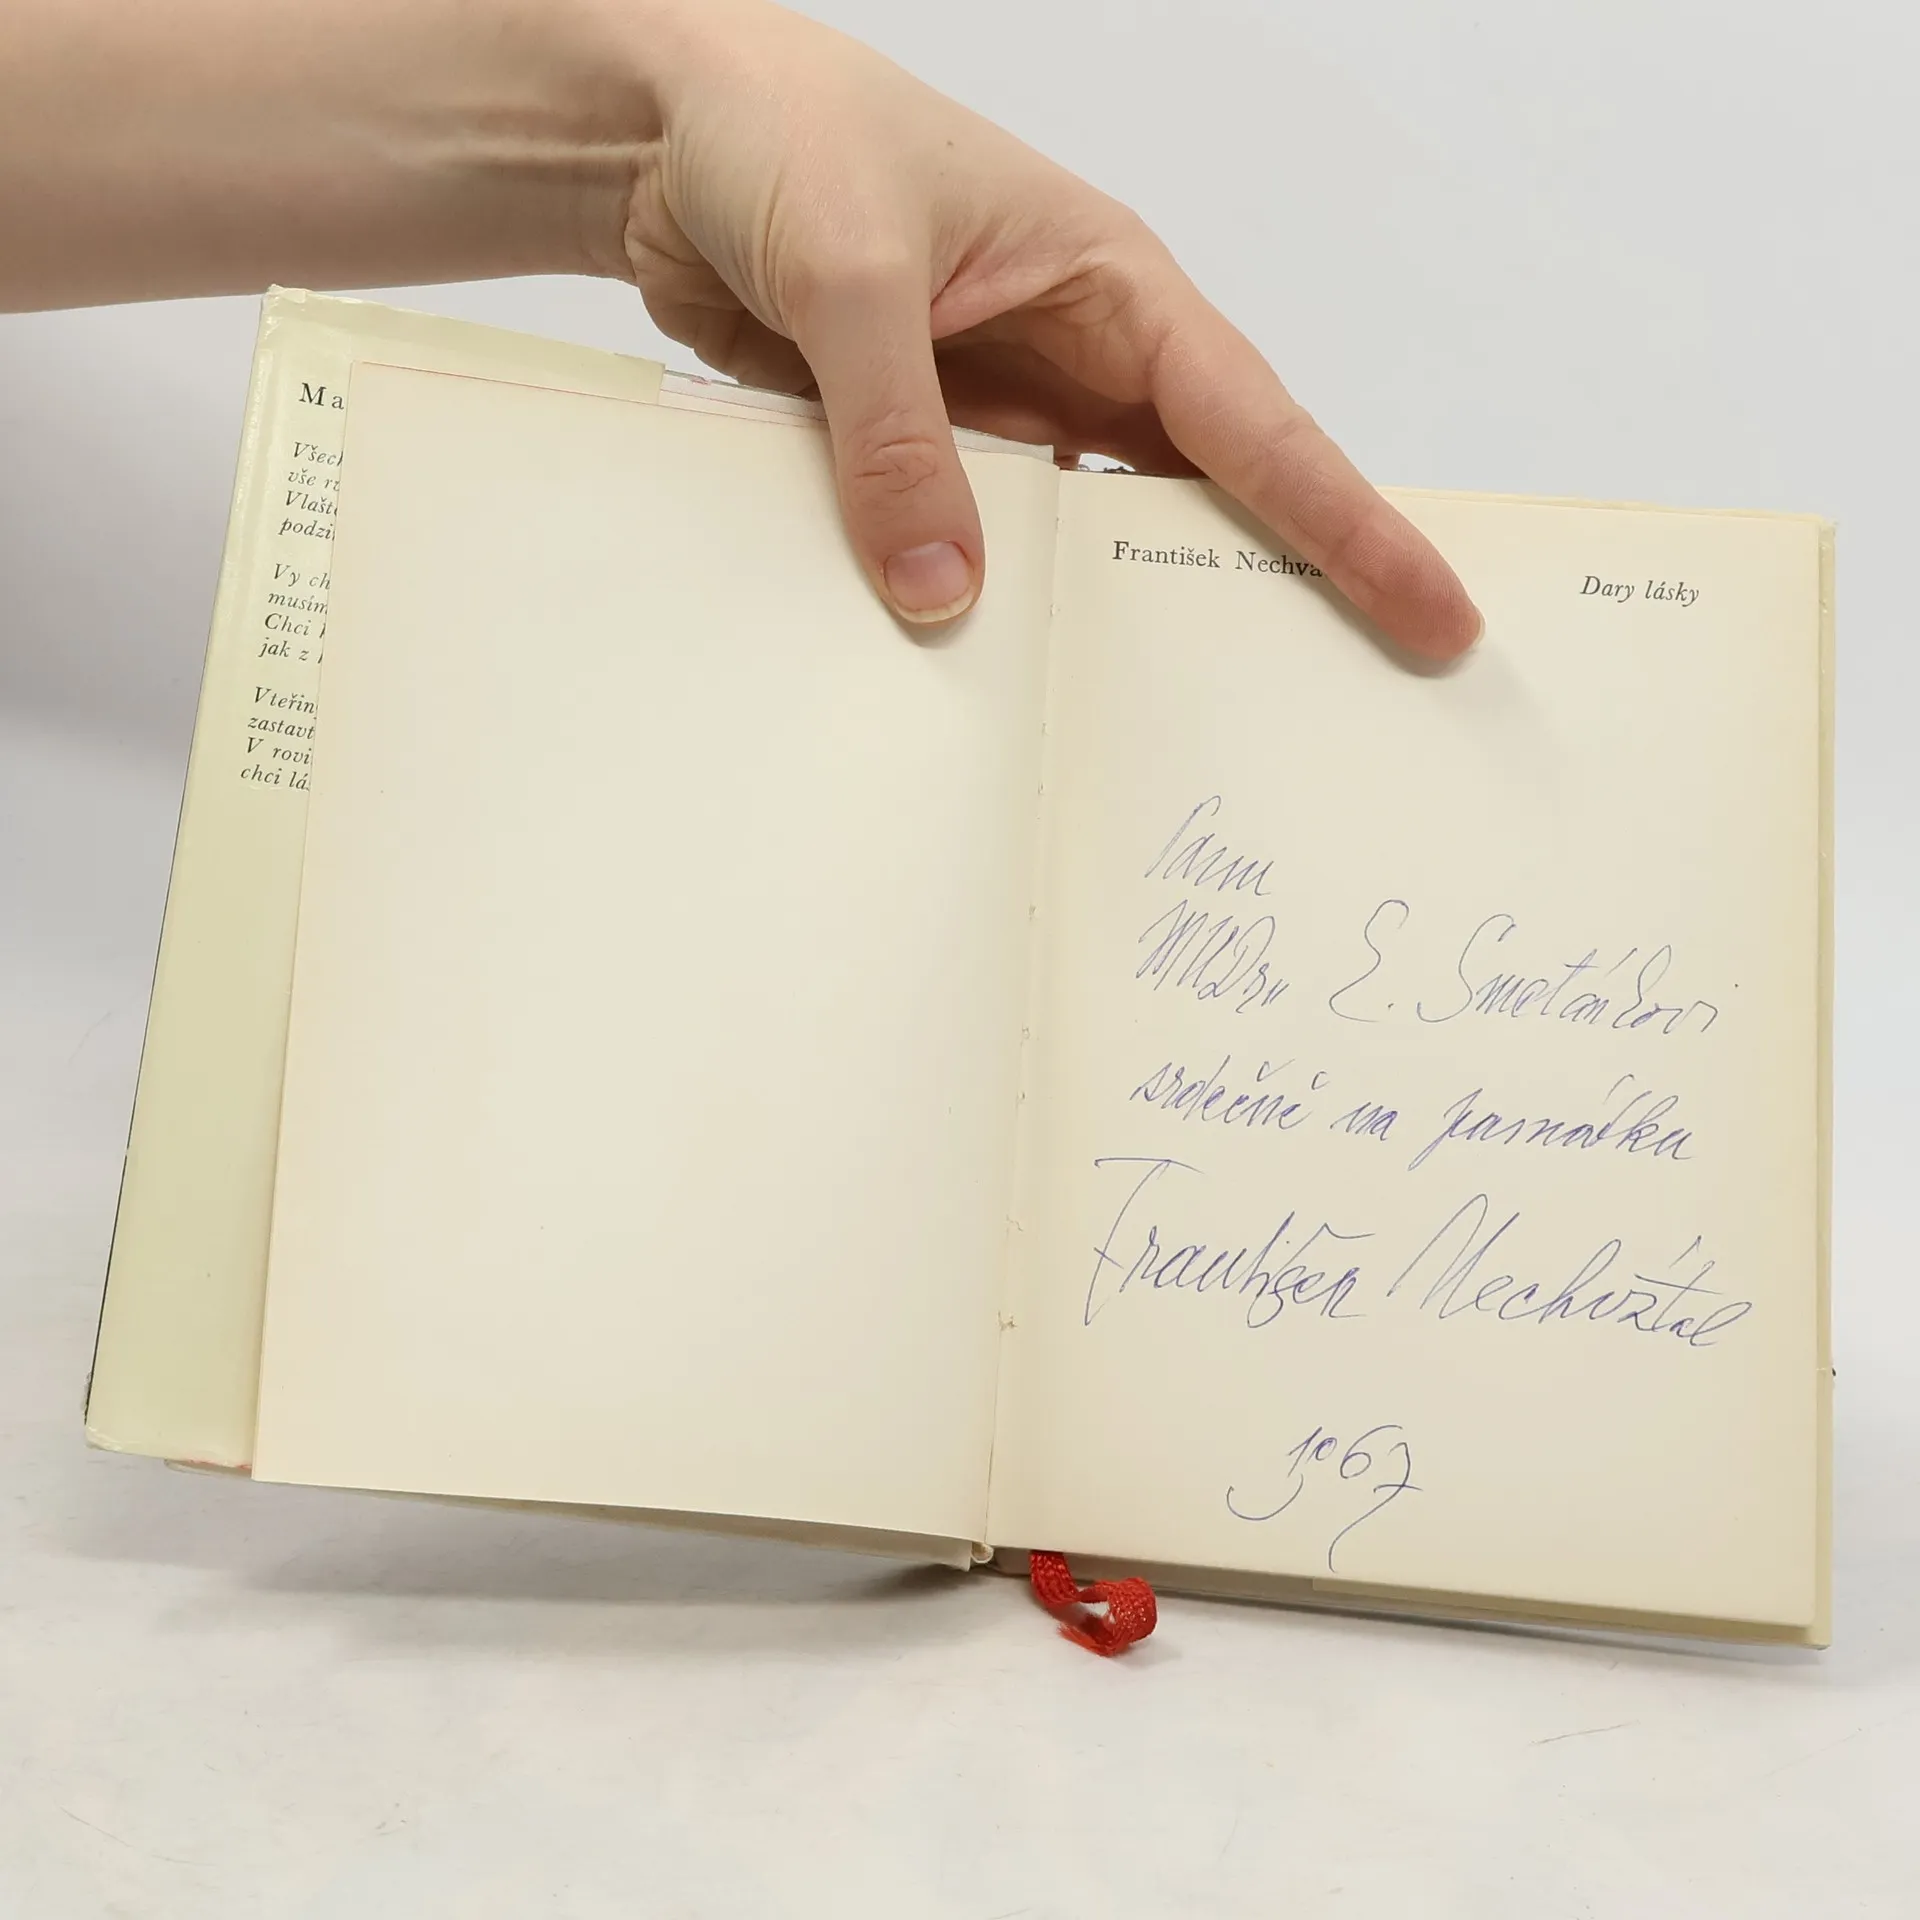 Ma
Všech
vše
Vlašt
podzi
Vy ch
musím
Chci
jak z
Vteřin
zastavt
V rovi
chci lá
František Nechva
Dary lásky
Panu
MUDru E. Smetánkovi
srdečně na památku
František Nechvátal
1967